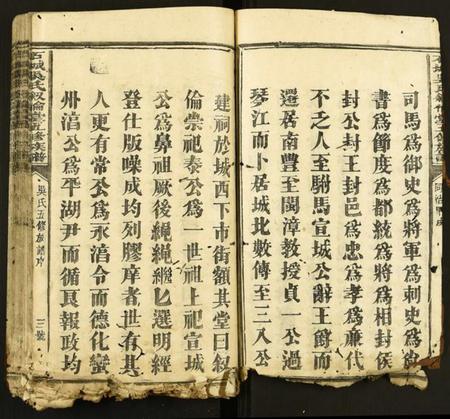 司馬爲御史爲將軍爲刺史爲尙
書爲節度爲都統爲將爲相封侯
封公封王封邑爲忠爲孝爲亷代
不乏人至駙馬宣城公辭王爵而
遷居南豐至閩漳教授貞一公過
琴江而卜居城北數傳至三入公
石城吳氏敘倫堂五修族譜
建祠於城西下市街額其堂曰敘
倫崇祀泰公爲一世祖上祀宣城
公爲鼻祖厥後繩繩
選明經
登仕版噪成均列膠庠者世有其
人更有常公爲永淯令而德化蠻
州淯公爲平湖尹而循良報政均
吳氏五修族譜序
三號